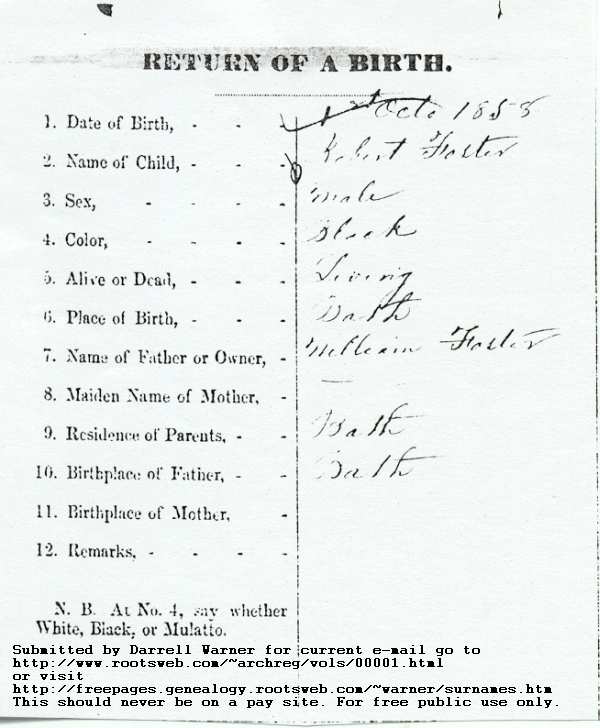 RETURN OF A BIRTH.
1. Date of Birth, - - - 1st Octo 1858
2. Name of Child, - - - Robert Foster
3. Sex, - - - - Male
4. Color, - - - - Black
5. Alive or Dead, - - - Living
6. Place of Birth, - - - Bath
7. Name of Father or Owner, - William Foster
8. Maiden Name of Mother, - —
9. Residence of Parents, - - Bath
10. Birthplace of Father, - - Bath
11. Birthplace of Mother, -
12. Remarks, - - - -
N. B. At No. 4, say whether
White, Black, or Mulatto.
Submitted by Darrell Warner for current e-mail go to
http://www.rootsweb.com/~archreg/vols/00001.html
or visit
http://freepages.genealogy.rootsweb.com/~warner/surnames.htm
This should never be on a pay site. For free public use only.